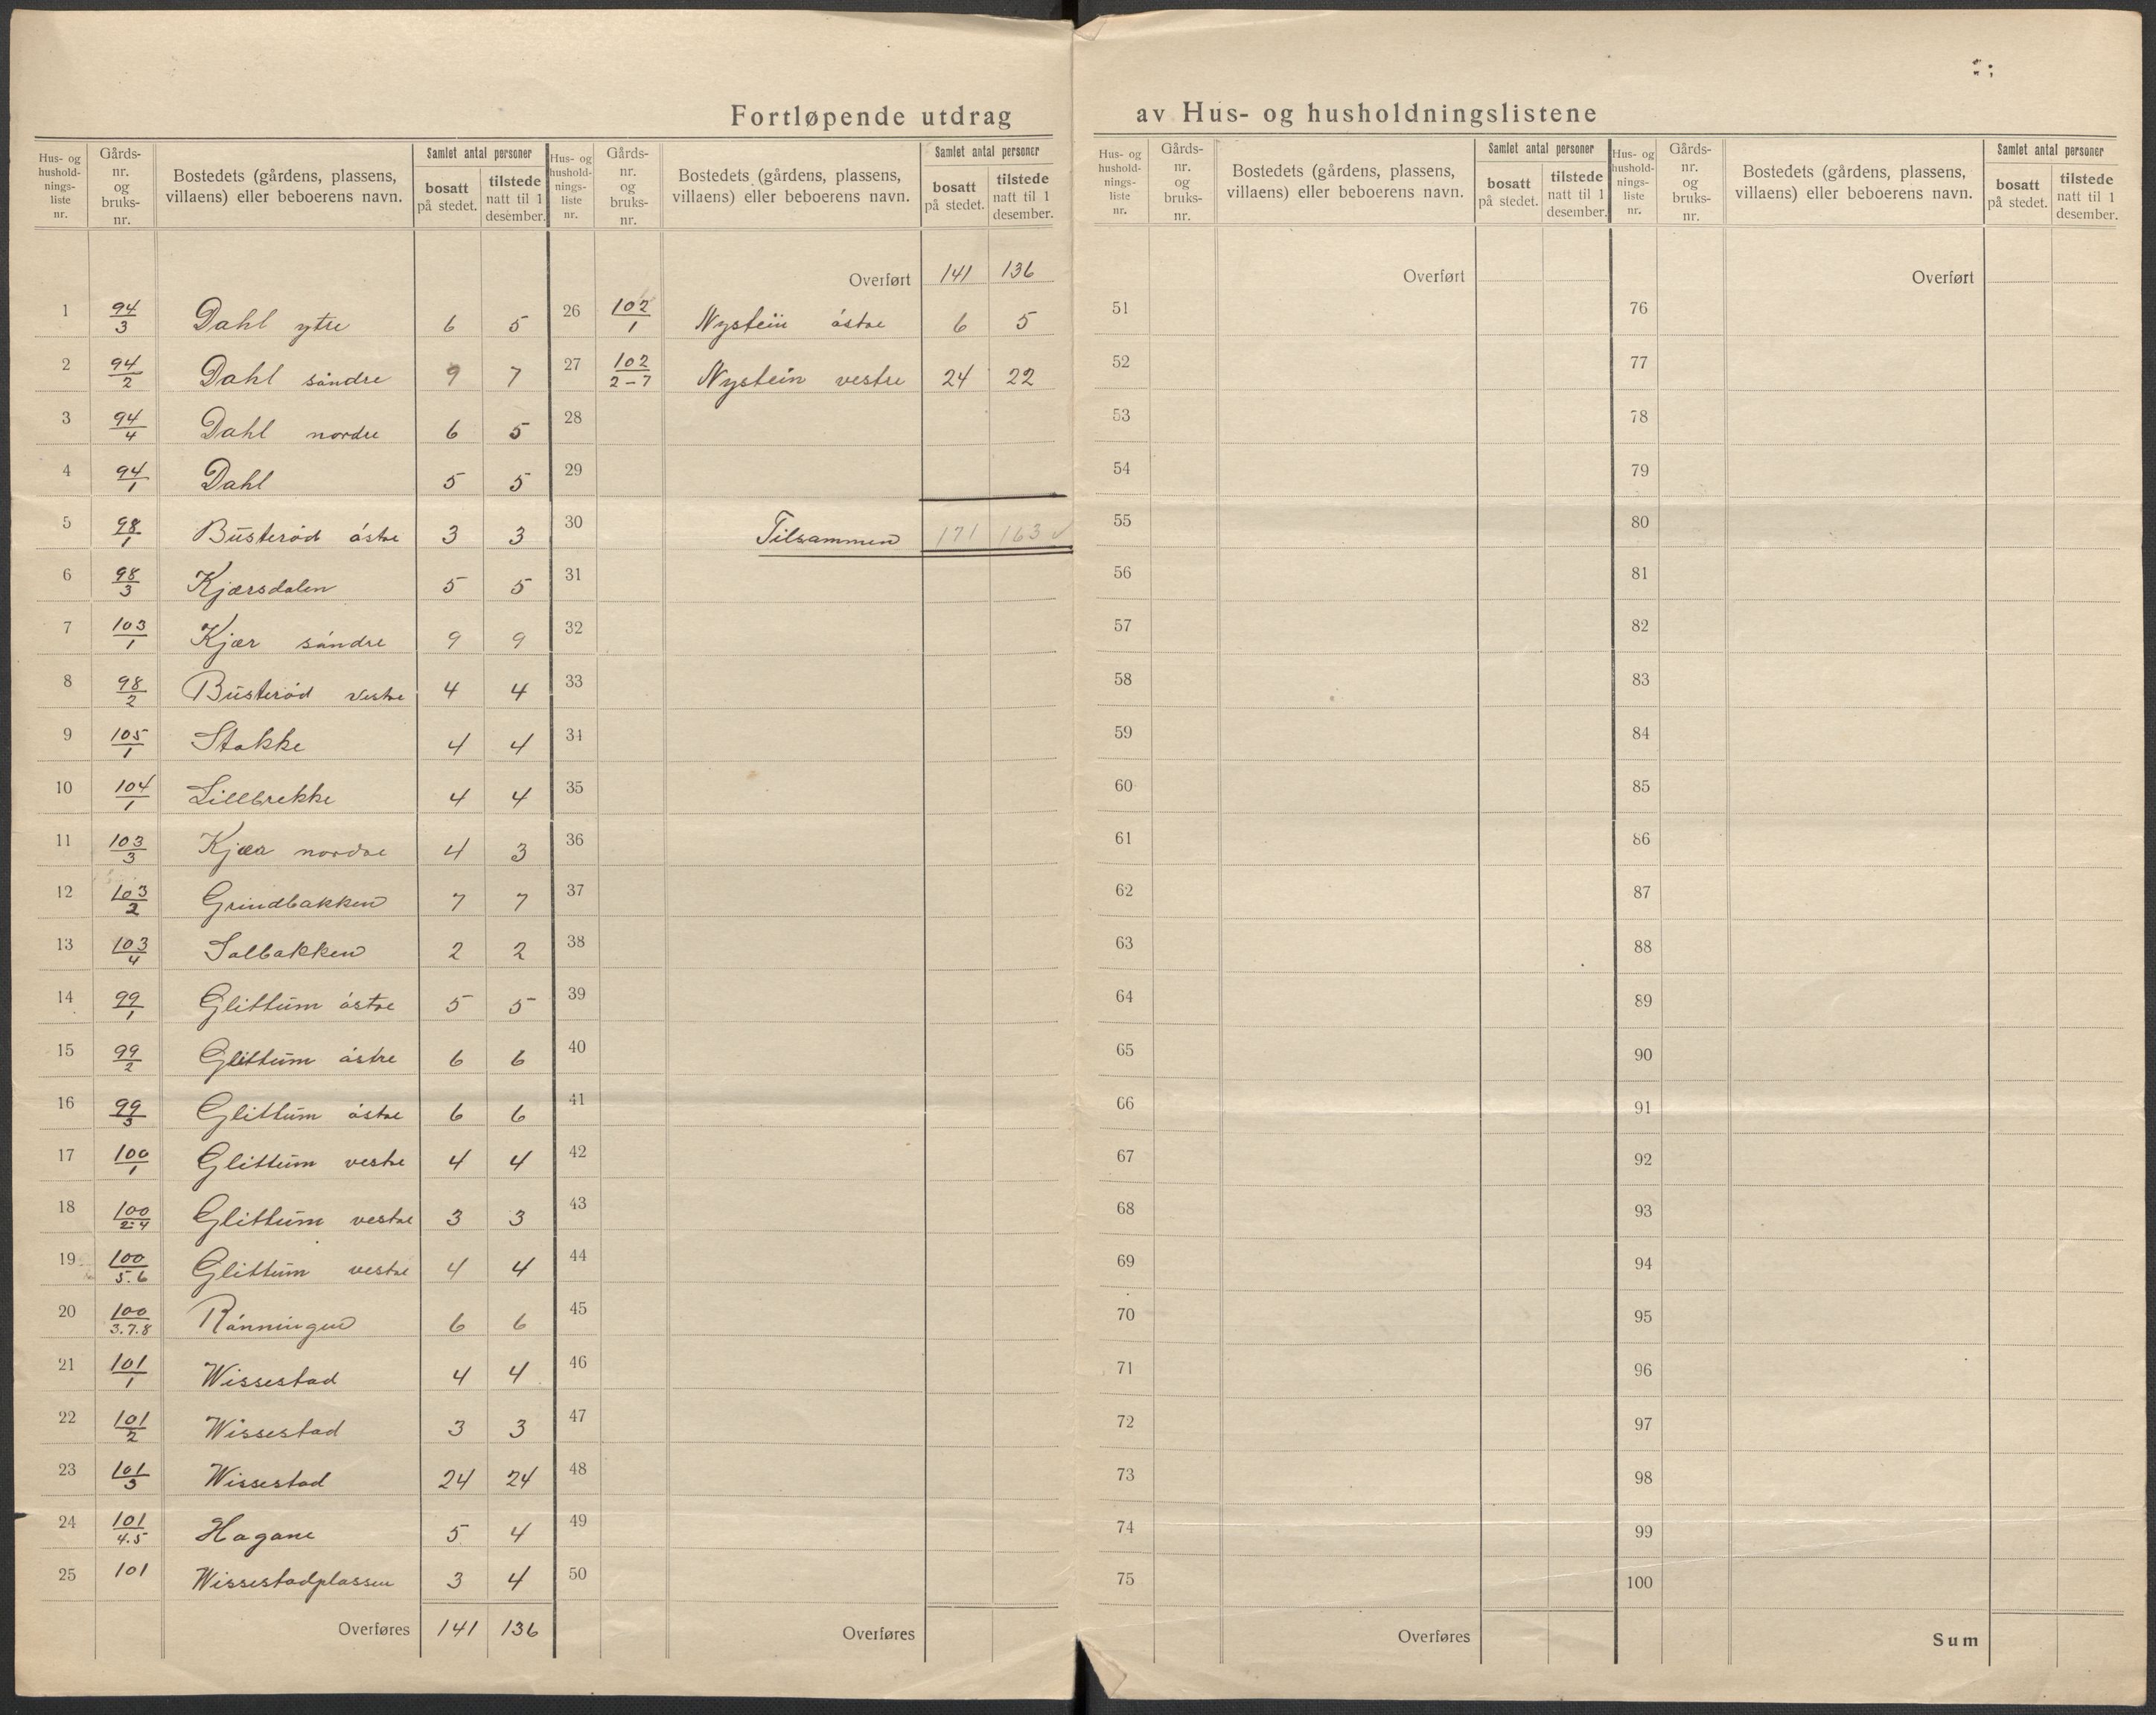 Fortløpende utdrag av Hus- og husholdningslistene
Hus- og hushold-nings-liste nr. Gårds-nr. og bruks-nr. Bostedets (gårdens, plassens, villaens) eller beboerens navn. Samlet antal personer bosatt på stedet. tilstede natt til 1 desember.
1 94/3 Dahl ytre 6 5
2 94/2 Dahl söndre 9 7
3 94/4 Dahl nordre 6 5
4 94/1 Dahl 5 5
5 98/1 Busteröd östre 3 3
6 98/3 Kjærsdalen 5 5
7 103/1 Kjær söndre 9 9
8 98/2 Busteröd vestre 4 4
9 105/1 Stokke 4 4
10 104/1 Lillbrekke 4 4
11 103/3 Kjær nordre 4 3
12 103/2 Grindbakken 7 7
13 103/4 Solbakken 2 2
14 99/1 Glittum östre 5 5
15 99/2 Glittum östre 6 6
16 99/3 Glittum östre 6 6
17 100/1 Glittum vestre 4 4
18 100/2-4 Glittum vestre 3 3
19 100/5.6 Glittum vestre 4 4
20 100/3.7.8 Rönningen 6 6
21 101/1 Wissestad 4 4
22 101/2 Wissestad 3 3
23 101/3 Wissestad 24 24
24 101/4.5 Hagane 5 4
25 101 Wissestadplassen 3 4
Overføres 141 136
Hus- og hushold-nings-liste nr. Gårds-nr. og bruks-nr. Bostedets (gårdens, plassens, villaens) eller beboerens navn. Samlet antal personer bosatt på stedet. tilstede natt til 1 desember.
Overført 141 136
26 102/1 Nystein östre 6 5
27 102/2-7 Nystein vestre 24 22
28
29
30 Tilsammen 171 163 ✓
31
32
33
34
35
36
37
38
39
40
41
42
43
44
45
46
47
48
49
50
Overføres
Hus- og hushold-nings-liste nr. Gårds-nr. og bruks-nr. Bostedets (gårdens, plassens, villaens) eller beboerens navn. Samlet antal personer bosatt på stedet. tilstede natt til 1 desember.
Overført
51
52
53
54
55
56
57
58
59
60
61
62
63
64
65
66
67
68
69
70
71
72
73
74
75
Overføres
Hus- og hushold-nings-liste nr. Gårds-nr. og bruks-nr. Bostedets (gårdens, plassens, villaens) eller beboerens navn. Samlet antal personer bosatt på stedet. tilstede natt til 1 desember.
Overført
76
77
78
79
80
81
82
83
84
85
86
87
88
89
90
91
92
93
94
95
96
97
98
99
100
Sum